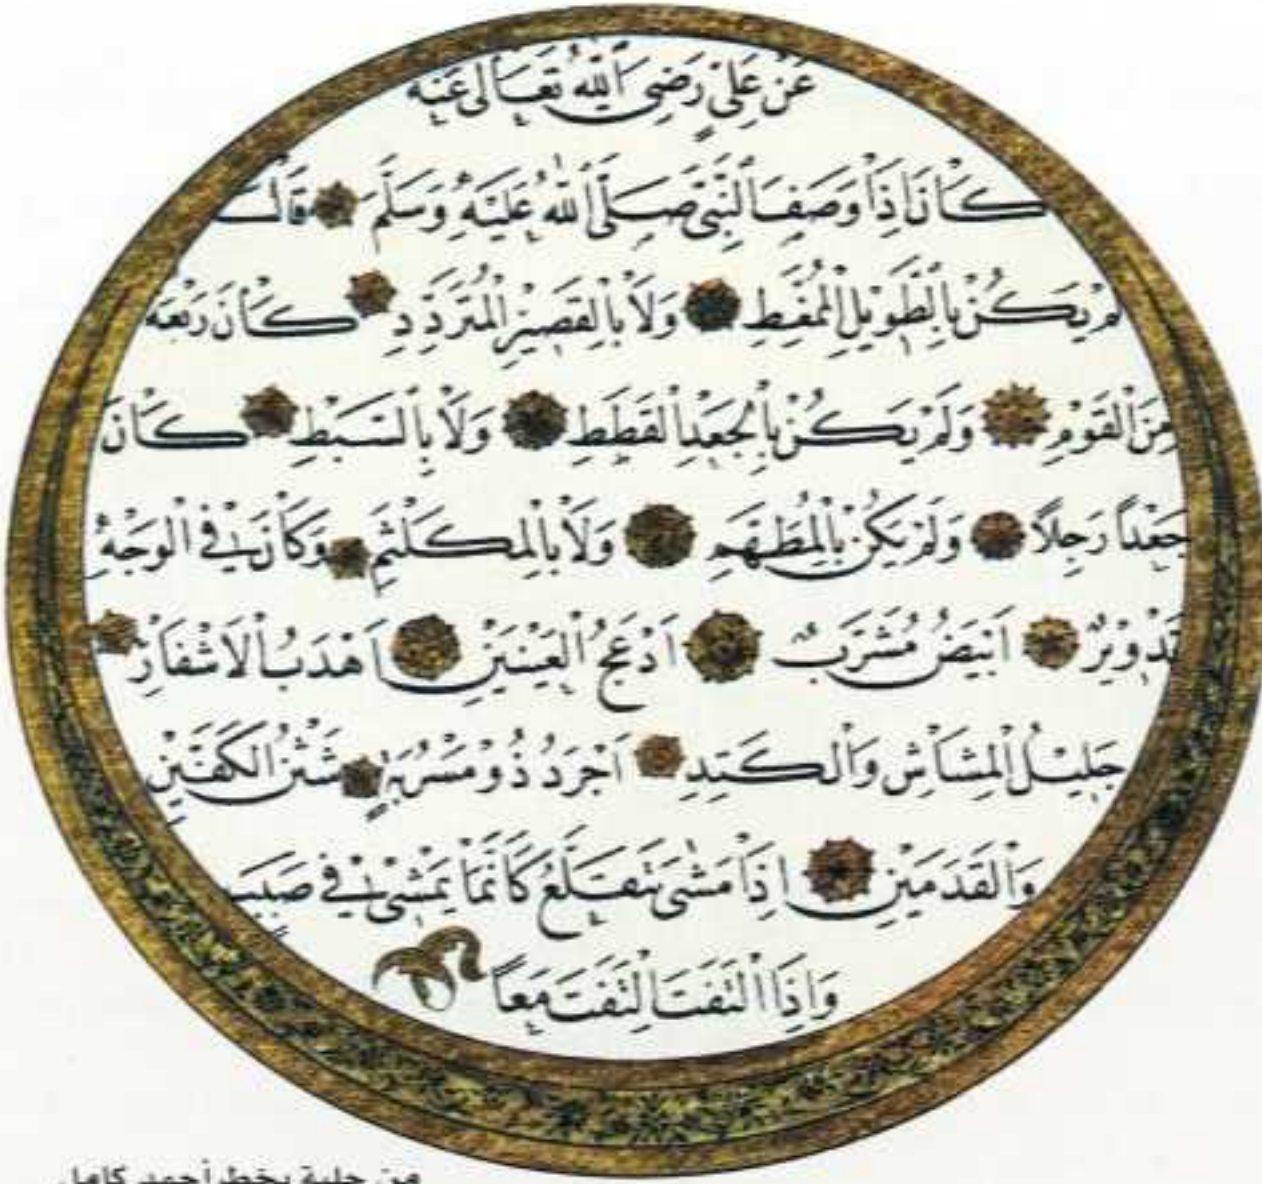 عَنْ عَلِيٍّ رَضِيَ اللّٰهُ تَعَالٰى عَنْهُ
كَانَ اِذَا وَصَفَ النَّبِيَّ صَلَّى اللّٰهُ عَلَيْهِ وَسَلَّمَ قَالَ
لَمْ يَكُنْ بِالطَّوِيلِ الْمُمَّغِطِ وَلَا بِالْقَصِيرِ الْمُتَرَدِّدِ كَانَ رَبْعَةً
مِنَ الْقَوْمِ وَلَمْ يَكُنْ بِالْجَعْدِ الْقَطَطِ وَلَا بِالسَّبْطِ كَانَ
جَعْداً رَجِلاً وَلَمْ يَكُنْ بِالْمُطَهَّمِ وَلَا بِالْمُكَلْثَمِ وَكَانَ فِي الْوَجْهِ
تَدْوِيرٌ اَبْيَضُ مُشْرَبٌ اَدْعَجُ الْعَيْنَيْنِ اَهْدَبُ الْاَشْفَارِ
جَلِيلُ الْمُشَاشِ وَالْكَتَدِ اَجْرَدُ ذُو مَسْرُبَةٍ شَثْنُ الْكَفَّيْنِ
وَالْقَدَمَيْنِ اِذَا مَشٰى يَتَقَلَّعُ كَاَنَّمَا يَمْشِي فِي صَبَبٍ
وَاِذَا الْتَفَتَ الْتَفَتَ مَعاً
من حلية بخط أحمد كامل